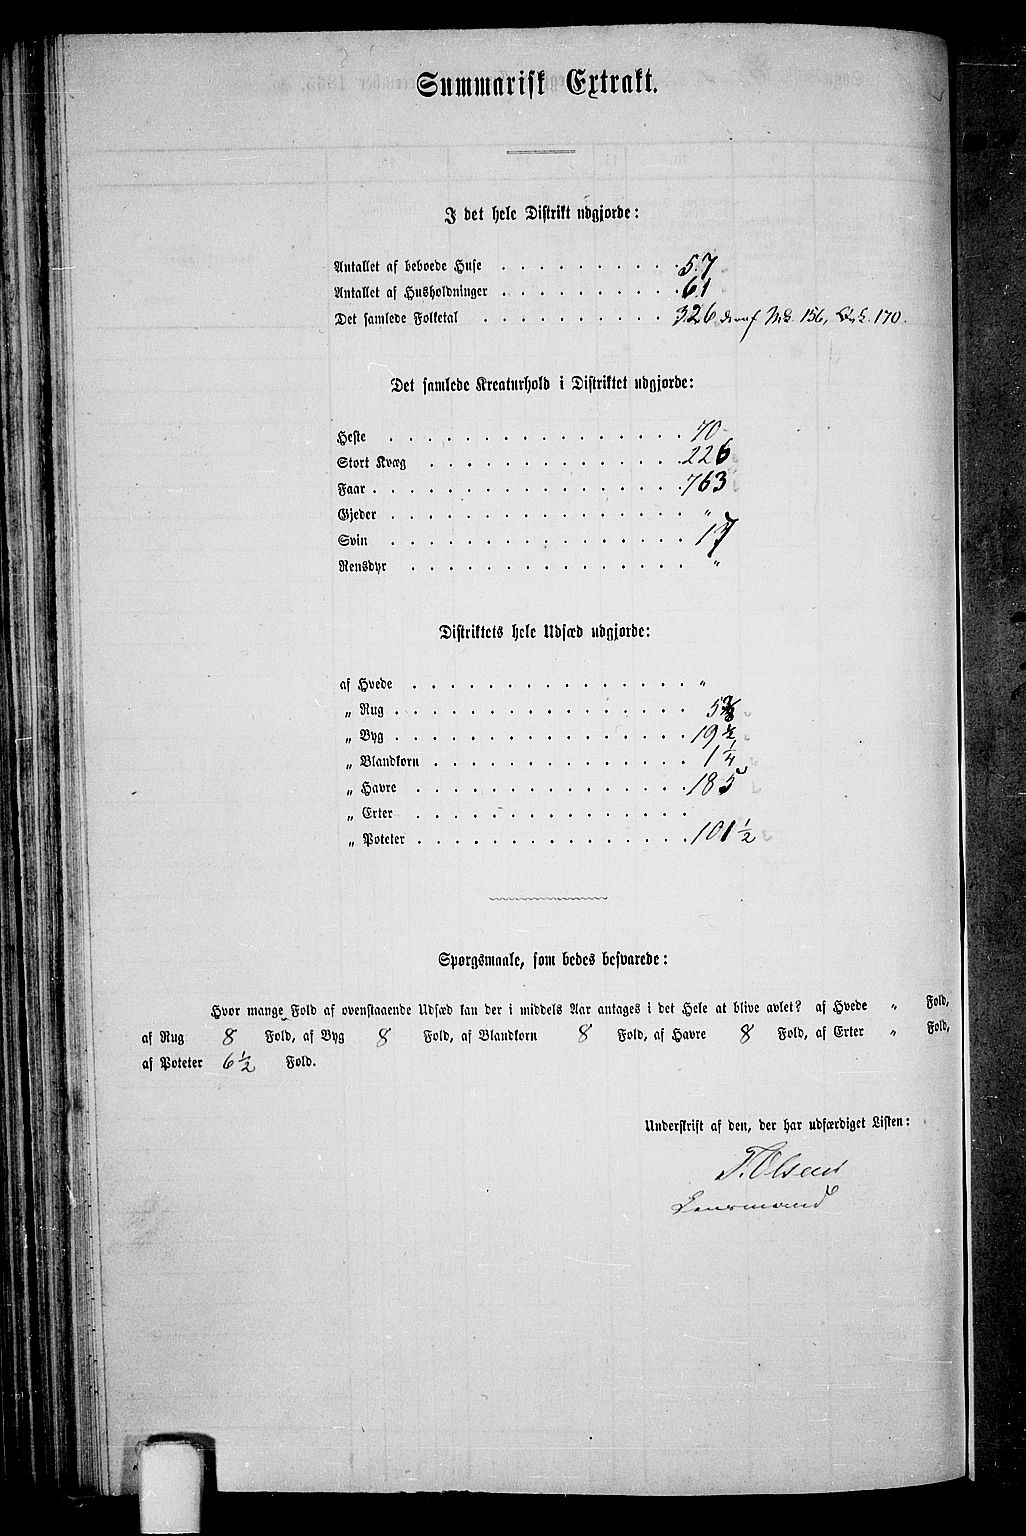 Summarisk Extrakt.
I det hele Distrikt udgjorde:
Antallet af beboede Huse . . . . . . . . . . 57
Antallet af Husholdninger . . . . . . . . . . 61
Det samlede Folketal . . . . . . . . . . 326 deraf Mk. 156, Qvk. 170.
Det samlede Kreaturhold i Distriktet udgjorde:
Heste . . . . . . . . . . 70
Stort Kvæg . . . . . . . . . . 226
Faar . . . . . . . . . . 763
Gjeder . . . . . . . . . . "
Svin . . . . . . . . . . 17
Rensdyr . . . . . . . . . . "
Distriktets hele Udsæd udgjorde:
af Hvede . . . . . . . . . . "
„ Rug . . . . . . . . . . 5
„ Byg . . . . . . . . . . 19 ½
„ Blandkorn . . . . . . . . . . 1 ¼
„ Havre . . . . . . . . . . 185
„ Erter . . . . . . . . . .
„ Poteter . . . . . . . . . . 101 ½
Spørgsmaale, som bedes besvarede:
Hvor mange Fold af ovenstaaende Udsæd kan der i middels Aar antages i det Hele at blive avlet? af Hvede " Fold,
af Rug 8 Fold, af Byg 8 Fold, af Blandkorn 8 Fold, af Havre 8 Fold, af Erter " Fold,
af Poteter 6 ½ Fold.
Underskrift af den, der har udfærdiget Listen:
T. Olsen
Lensmand